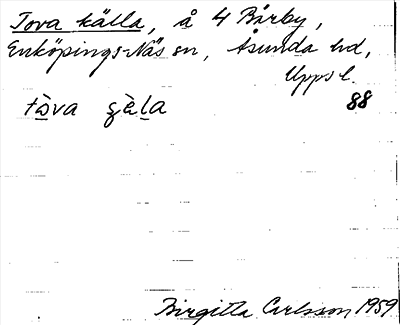 Tova källa, å 4 Bärby,
Enköpings-Näs sn, Åsunda hd,
Upps l.
tòva çèla 88
Birgitta Carlsson 1959